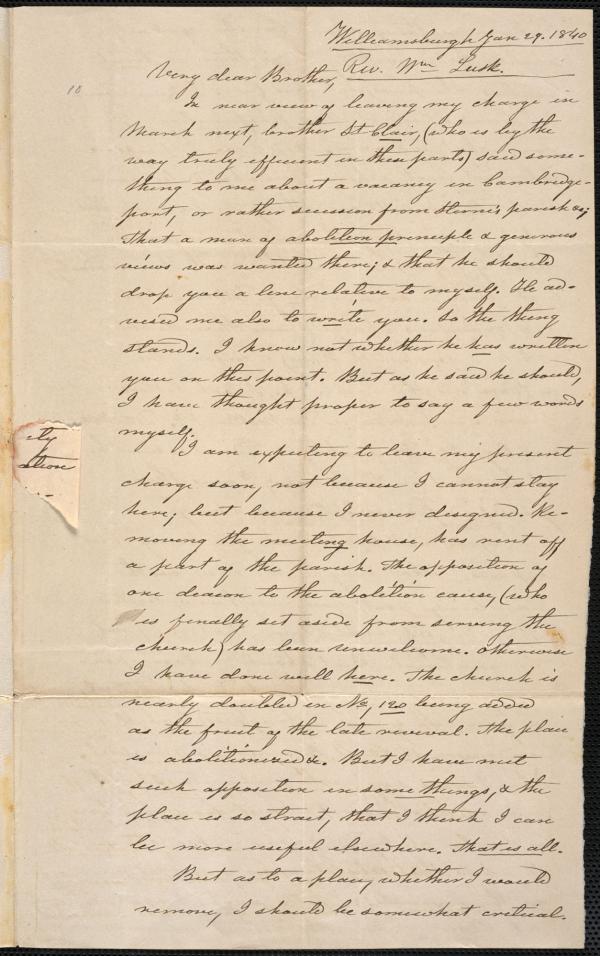 Williamsburgh Jan 29. 1840
Rev. Wm Lusk.
Very dear Brother,
10
In near view of leaving my charge in
March next, brother St Clair, (who is by the
way truly efficient in these parts) said some-
thing to me about a vacancy in Cambridge-
port, or rather secession from parish &c;
That a man of abolition principle & generous
views was wanted there; & that he should
drop you a line relative to myself. He ad-
vised me also to write you. So the thing
stands. I know not whether he has written
you on this point. But as he said he should,
I have thought proper to say a few words
myself.
I am expecting to leave my present
charge soon, not because I cannot stay
here; but because I never designed. Re-
moving the meeting house, has rent off
a part of the parish. The opposition of
one deacon to the abolition cause, (who
is finally set aside from serving the
church) has been unwelcome. Otherwise
I have done well here. The church is
nearly doubled in No, 120 being added
as the fruit of the late revival. The place
is abolitionized &c. But I have met
such opposition in some things, & the
place is so strait, that I think I can
be more useful elsewhere. That is all.
But as to a place, whether I would
remove, I should be somewhat critical.
ity
ation